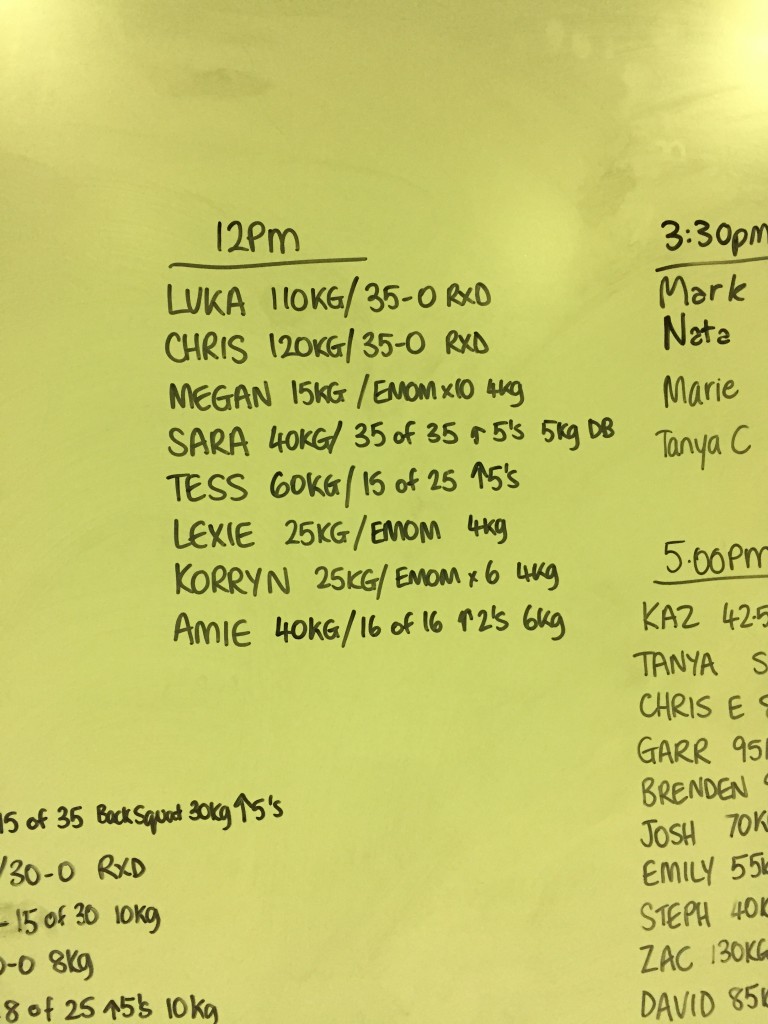 12Pm
LUKA 110KG/ 35-0 RXD
CHRIS 120KG/ 35-0 RXD
MEGAN 15KG /EMOM x10 4kg
SARA 40KG/ 35 of 35 ↑ 5's 5kg DB
TESS 60KG/ 15 of 25 ↑5's
LEXIE 25KG/EMOM 4kg
KORRYN 25KG/ EMOM x 6 4kg
AMIE 40KG/16 of 16 ↑2's 6kg
15 of 35 Back Squat 30kg ↑5's
/30-0 RXD
- 15 of 30 10kg
0-0 8kg
8 of 25 ↑5's 10kg
3:30pm
Mark
Nata
Marie
Tanya C
5:00pm
KAZ 42.5
TANYA S
CHRIS E
GARR 95
BRENDEN
JOSH 70K
EMILY 55k
STEPH 40K
ZAC 130KG
DAVID 85k